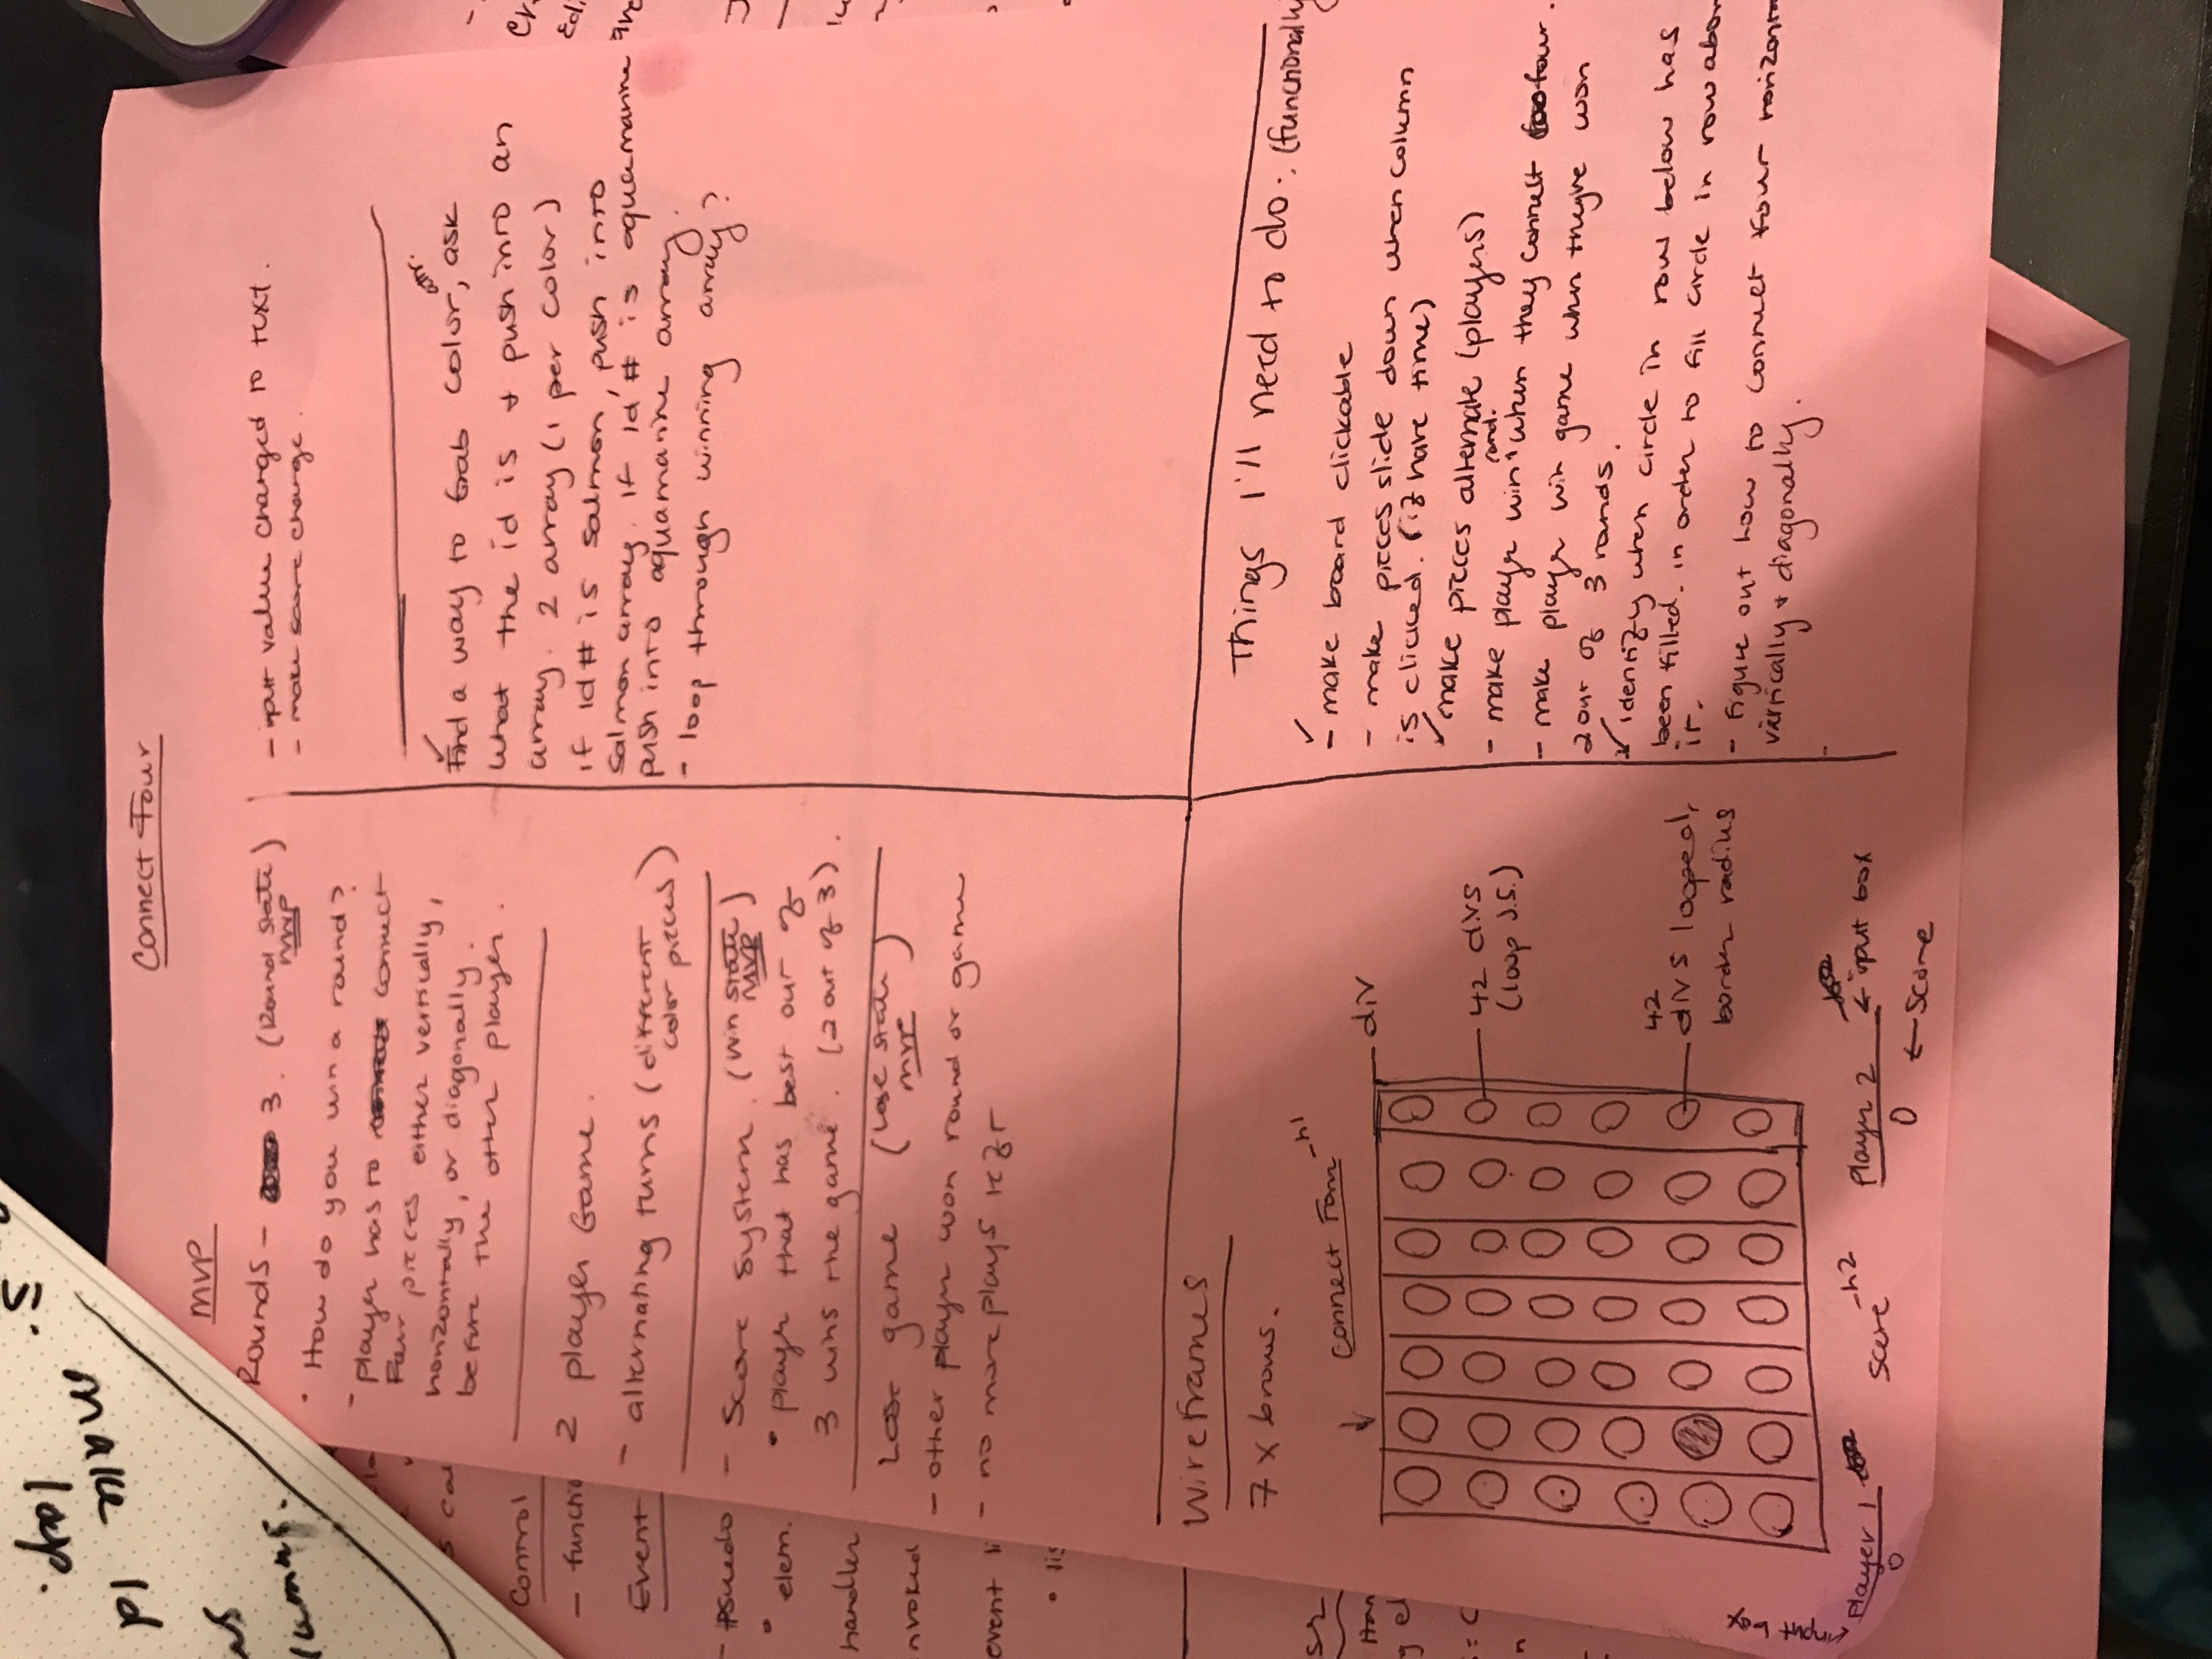 5.
make id
lap.
Connect Four
MVP
Rounds - 3. (Round State
MVP)
• How do you win a round?
- player has to connect
Four pieces either vertically,
horizontally, or diagonally.
before the other player.
2 player Game.
- alternating turns (different
color pieces)
- Score system. (win state
MVP)
• player that has best out of
3 wins the game. (2 out of 3).
Lose game (Lose state
MVP)
- other player won round or game
- no more plays left
- input value changed to text.
- make score change.
✓
Find a way to Grab color, attr. ask
what the id is + push into an
array. 2 array (1 per color)
if id# is salmon, push into
salmon array. If id # is aquamarine
push into aquamarine array.
- loop through winning array?
Control
- functio
Event
- Psuedo
• elem.
handler
nvoked
event li
• lis
Wireframes
7 x 6rows.
Connect Four -h1
div
42 divs
(loop J.S.)
42
divs looped,
border radius
input box
Player 1
0
Score -h2
Player 2 ← input box
0 ← Score
Things I'll need to do: (functionally
✓
- make board clickable
- make pieces slide down when column
is clicked. (if have time)
✓ make pieces alternate (players)
- make player win rond. when they connect four.
- make player win game when theyve won
2 out of 3 rounds.
✓ identify when circle in row below has
been filled. in order to fill circle in row abov
it.
- Figure out how to connect four horizonta
vertically + diagonally.
-